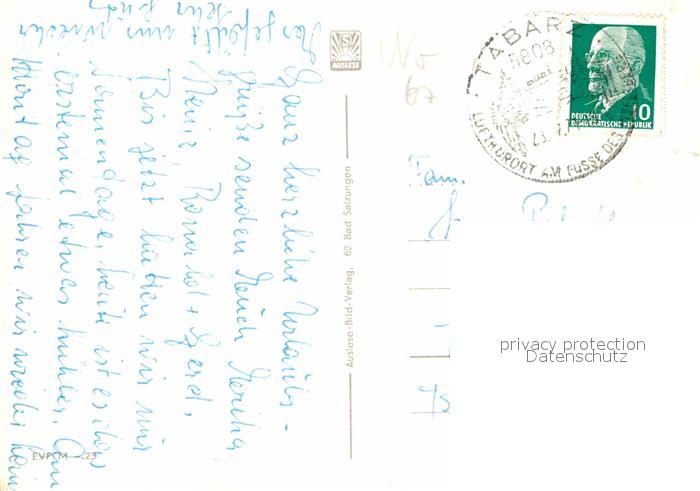 Ganz herzliche Urlaubs-
grüße senden Euch Marika
Heinz Ronald + Gerd.
Bis jetzt hatten wir nur
Sonnentage, heute ist es das
erstemal etwas kühler. Am
Montag fahren wir wieder heim
Es gefällt uns wieder
sehr gut
AUSLESE
EVP M -.25
Auslese-Bild-Verlag, 62 Bad Salzungen
TABARZ
5808
LUFTKURORT AM FUSSE DES
DEUTSCHE
DEMOKRATISCHE REPUBLIK
10
67
Fam.
privacy protection
Datenschutz